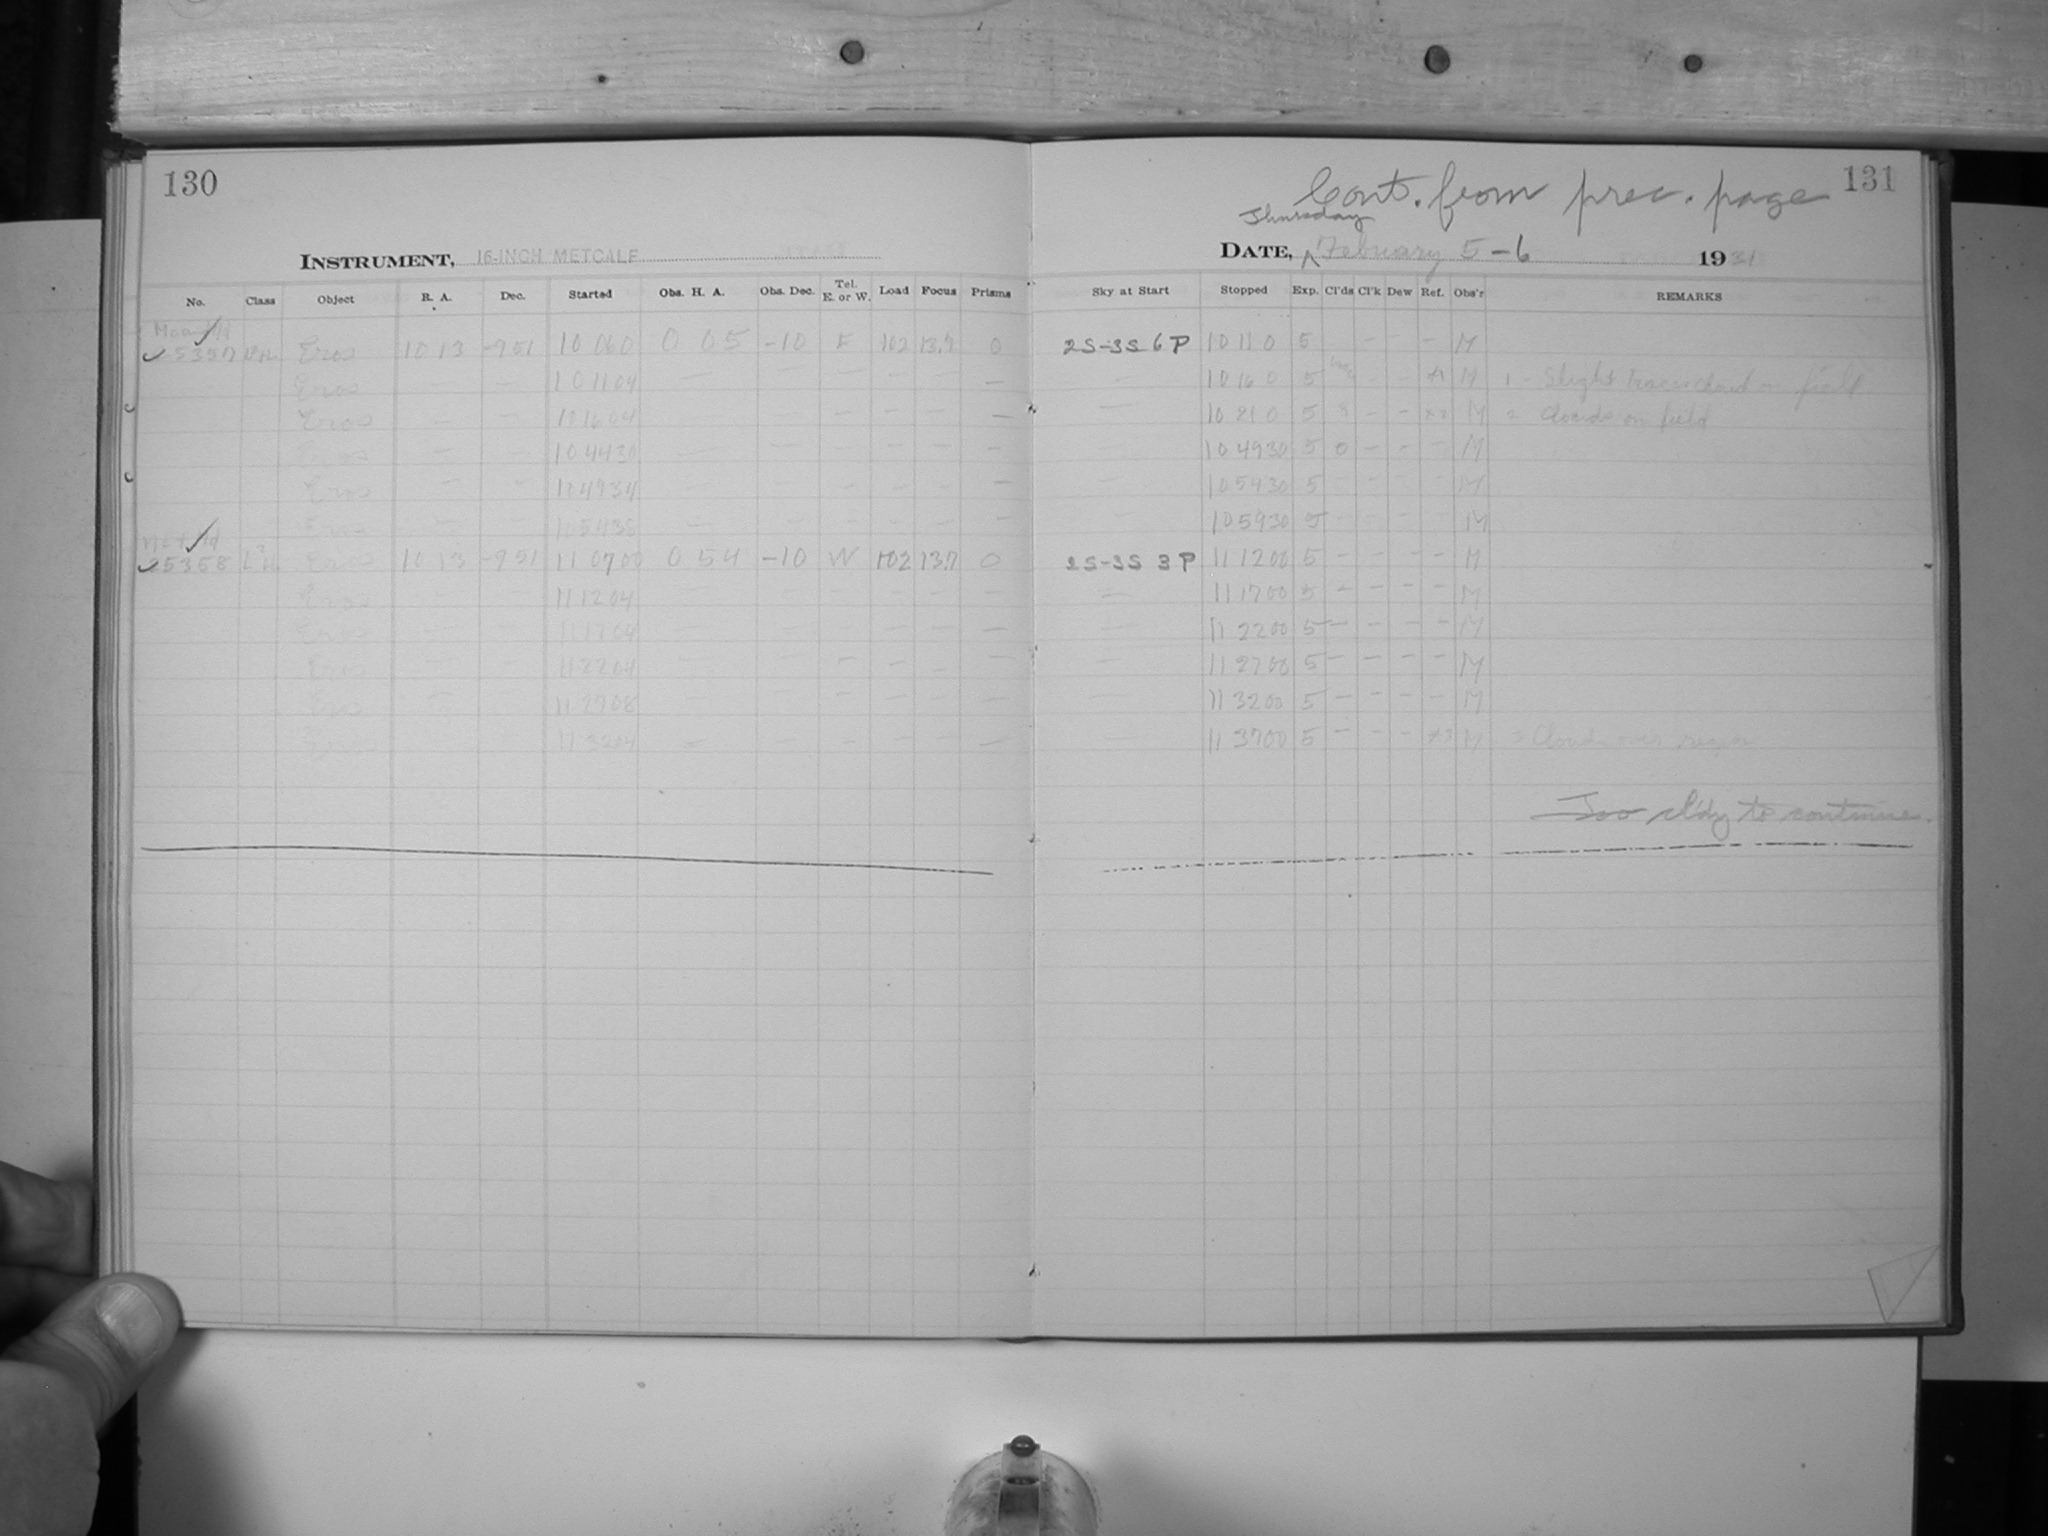 130
INSTRUMENT, 16-INCH METCALF
No. Class Object R. A. Dec. Started Obs. H. A. Obs. Dec. Tel. E. or W. Load Focus Prisms
5357 Eros 10 13 -9 51 10 06 0 0 05 -10 E 102 13.7 0
Eros — — 10 11 04 — — — — — —
Eros — — 10 16 04 — — — — — —
Eros — — 10 44 30 — — — — — —
Eros — — 10 49 34 — — — — — —
Eros — — 10 54 38 — — — — — —
5358 Eros 10 13 -9 51 11 07 00 0 54 -10 W 102 13.7 0
Eros — — 11 12 04 — — — — — —
Eros — — 11 17 04 — — — — — —
Eros — — 11 22 04 — — — — — —
Eros — — 11 27 08 — — — — — —
Eros — — 11 32 04 — — — — — —
Cont. from prec. page 131
Thursday
DATE, February 5-6 1931
Sky at Start Stopped Exp. Cl'ds Cl'k Dew Ref. Obs'r REMARKS
2S-3S 6P 10 11 0 5 — — — M
— 10 16 0 5 — — x1 M 1 - Slight traces cloud on field
— 10 21 0 5 — — x2 M 2 Clouds on field
— 10 49 30 5 0 — — — M
— 10 54 30 5 — — — — M
— 10 59 30 5 — — — — M
2S-3S 3P 11 12 00 5 — — — — M
— 11 17 00 5 — — — — M
— 11 22 00 5 — — — — M
— 11 27 00 5 — — — — M
— 11 32 00 5 — — — — M
— 11 37 00 5 — — — x3 M 3 Clouds over region
Too cl'dy to continue.